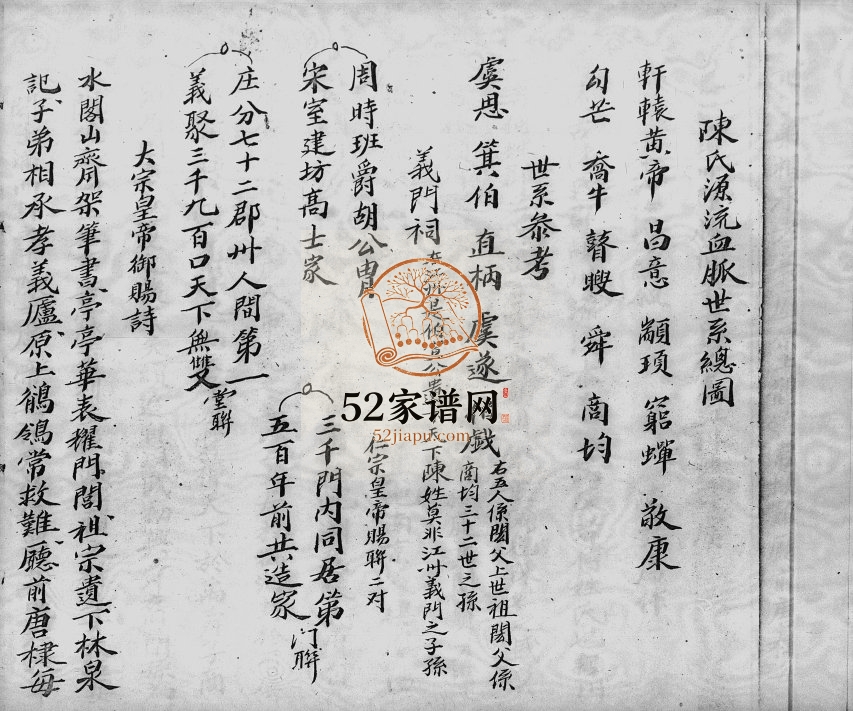 陳氏源流血脈世系總圖
軒轅黄帝 昌意 顓頊 窮蟬 敬康
勾芒 喬牛 瞽瞍 舜 商均
世系參考
虞思 箕伯 直柄 虞遂 戲
右五人係閼父上世祖閼父係
商均三十二世之孫
義門祠
天下陳姓莫非江州義門之子孫
仁宗皇帝賜聨二対
周時班爵胡公胄
宋室建坊高士家
三千門内同居第
五百年前共造家
门聨
庄分七十二郡州人間第一
義聚三千九百口天下無雙
堂聨
大宗皇帝御賜詩
水閣山齋架筆書亭亭華表耀門閭祖宗遺下林泉
記子弟相承孝義廬原上鶺鴒常救難廳前唐棣每
52家谱网
52jiapu.com